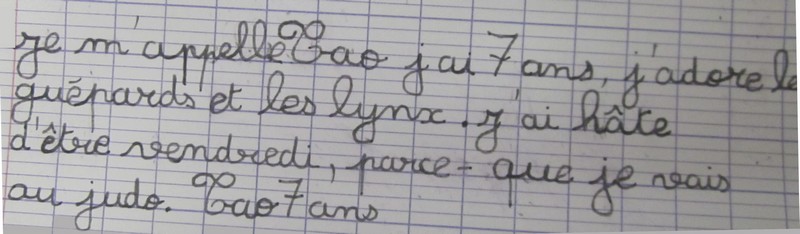 je m'appelle Tao j'ai 7 ans, j'adore le
guépards et les lynx. j'ai hâte
d'être vendredi, parce-que je vais
au judo. Tao 7 ans